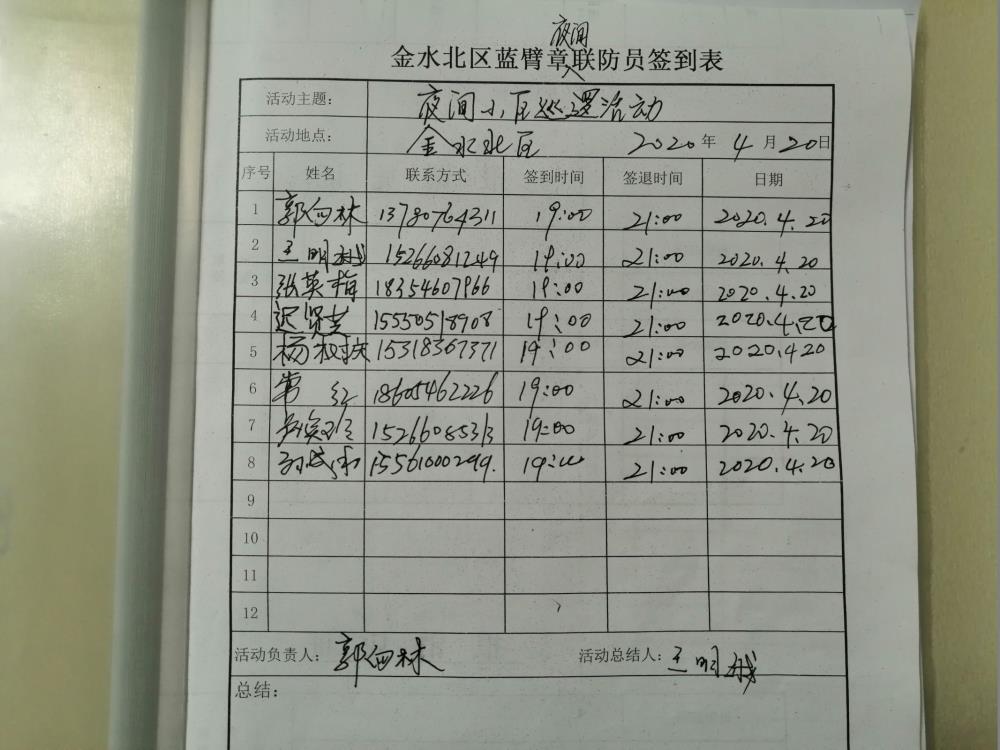 夜间
金水北区蓝臂章联防员签到表
活动主题: 夜间小区巡逻活动
活动地点: 金水北区 2020年4月20日
序号 姓名 联系方式 签到时间 签退时间 日期
1 郭向林 13780764311 19:00 21:00 2020.4.20
2 王明越 15266081249 19:00 21:00 2020.4.20
3 张英梅 18354607966 19:00 21:00 2020.4.20
4 迟贤芝 15550518908 19:00 21:00 2020.4.20
5 杨 15318367371 19:00 21:00 2020.4.20
6 常红 18605462226 19:00 21:00 2020.4.20
7 15266085313 19:00 21:00 2020.4.20
8 15561000299. 19:00 21:00 2020.4.20
9
10
11
12
活动负责人: 郭向林 活动总结人: 王明越
总结: